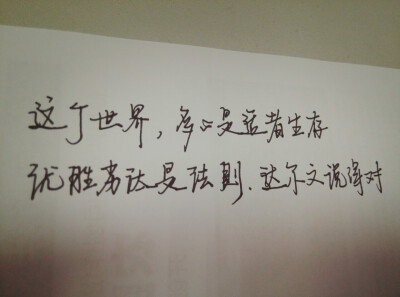 这个世界，是适者生存
优胜劣汰是法则.达尔文说得对